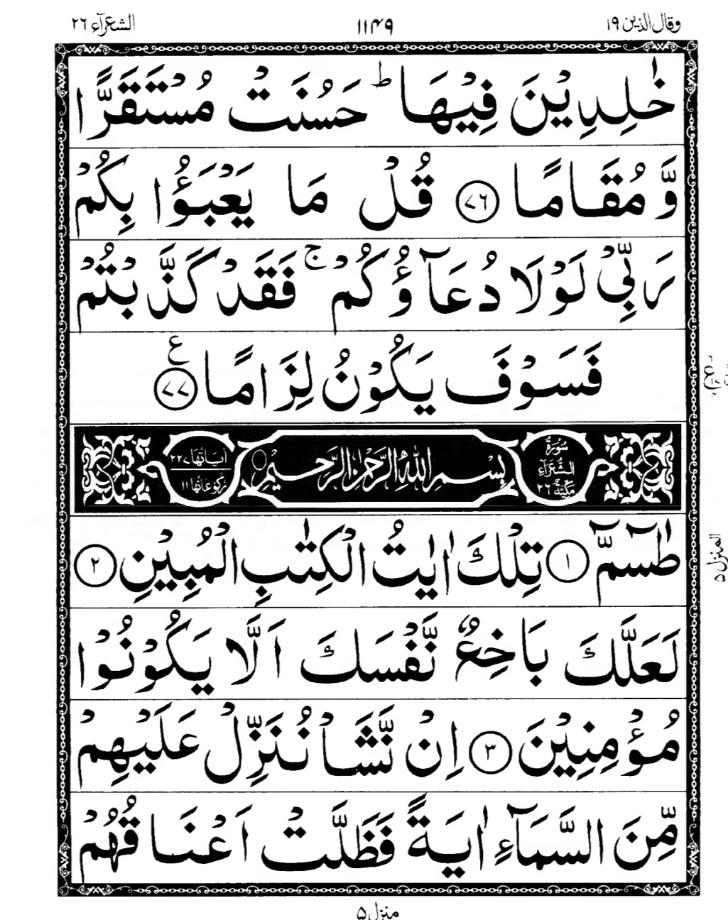 وقال الذین ۱۹
۱۱۴۹
الشعرآء ۲۶
خٰلِدِیْنَ فِیْهَا ؕ حَسُنَتْ مُسْتَقَرًّا
وَّ مُقَامًا ۟۷۶ قُلْ مَا یَعْبَؤُا بِكُمْ
رَبِّیْ لَوْلَا دُعَآؤُكُمْ ۚ فَقَدْ كَذَّبْتُمْ
فَسَوْفَ یَكُوْنُ لِزَامًا ۟۷۷ ع
سُوْرَةُ الشُّعَرَآءِ مَكِّیَّةٌ ۲۶
بِسْمِ اللهِ الرَّحْمٰنِ الرَّحِیْمِ
اٰیَاتُهَا ۲۲۷
رُكُوْعَاتُهَا ۱۱
طٰسٓمّٓ ۟۱ تِلْكَ اٰیٰتُ الْكِتٰبِ الْمُبِیْنِ ۟۲
لَعَلَّكَ بَاخِعٌ نَّفْسَكَ اَلَّا یَكُوْنُوْا
مُؤْمِنِیْنَ ۟۳ اِنْ نَّشَاْ نُنَزِّلْ عَلَیْهِمْ
مِّنَ السَّمَآءِ اٰیَةً فَظَلَّتْ اَعْنَاقُهُمْ
المنزل ۵
منزل ۵